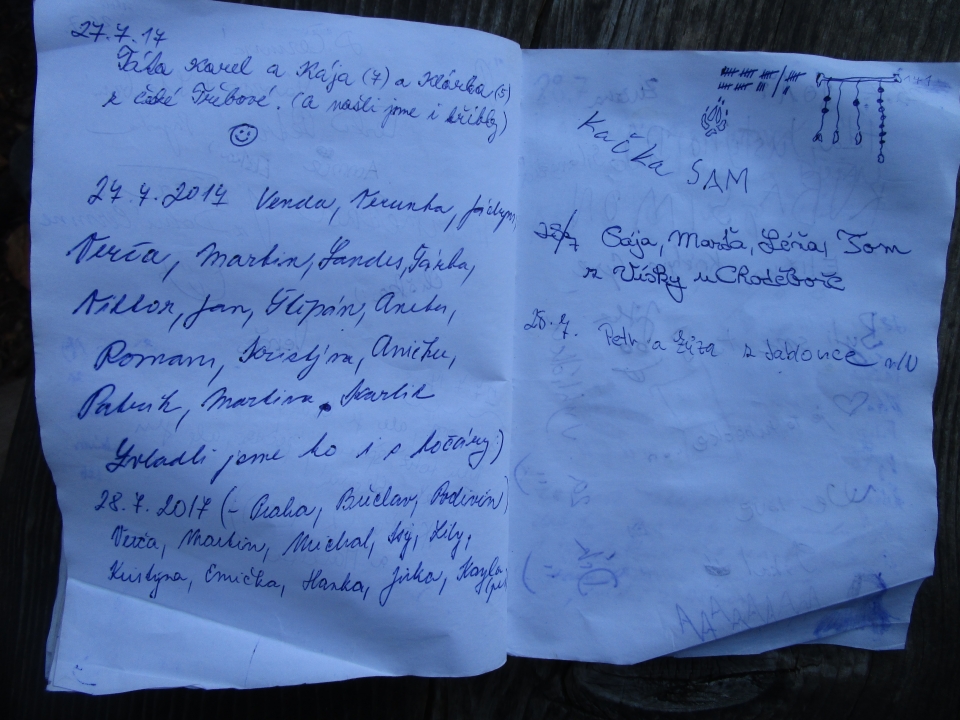 27.7.17
Táta Karel a Kája (7) a Klárka (5)
z České Třebové. (a našli jsme i hřibky)
27.7.2017 Venda, Verunka, Jáchym,
Verča, Martin, Šárka,
Viktor, Jan, Štěpán,
Roman, Kristýna, Anička,
Patrik, Martina, Skarlik
Zvládli jsme to i s kočárky :)
28.7.2017 (- Praha, Břeclav, Podivín)
Verča, Martin, Michal, Lily,
Kristyna, Emička, Hanka, Jirka, Kayla
Kačka SAM
28/7 Cája, Marťa, Léňa, Tom
z Vísky u Chotěboře
28.7. Petr a Zúza z Jablonce n/N